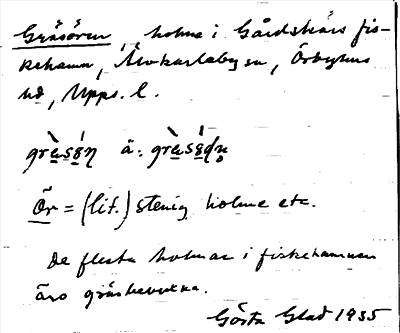 Gräsören, holme i Gårdskärs fis-
kehamn, Älvkarleby sn, Örbyhus
hd, Upps. l.
Ör = (lit.) stenig holme etc.
De flesta holmar i fiskehamnen
äro gräsbevuxna.
Gösta Glad 1935